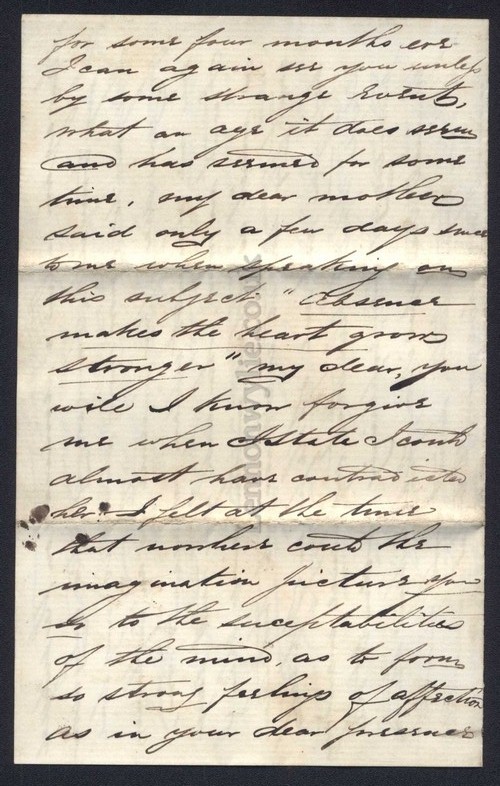 for some four months ere
I can again see you unless
by some strange Event,
what an age it does seem
and has seemed for some
time, my dear mother
said only a few days since
to me when speaking on
this subject "Absence
makes the heart grow
stronger" my dear, you
wile I know forgive
me when I state I could
almost have contradicted
her. I felt at the time
that nowhere could the
imagination picture you
so to the suceptabilities
of the mind, as to form
so strong feelings of affection
as in your dear presence